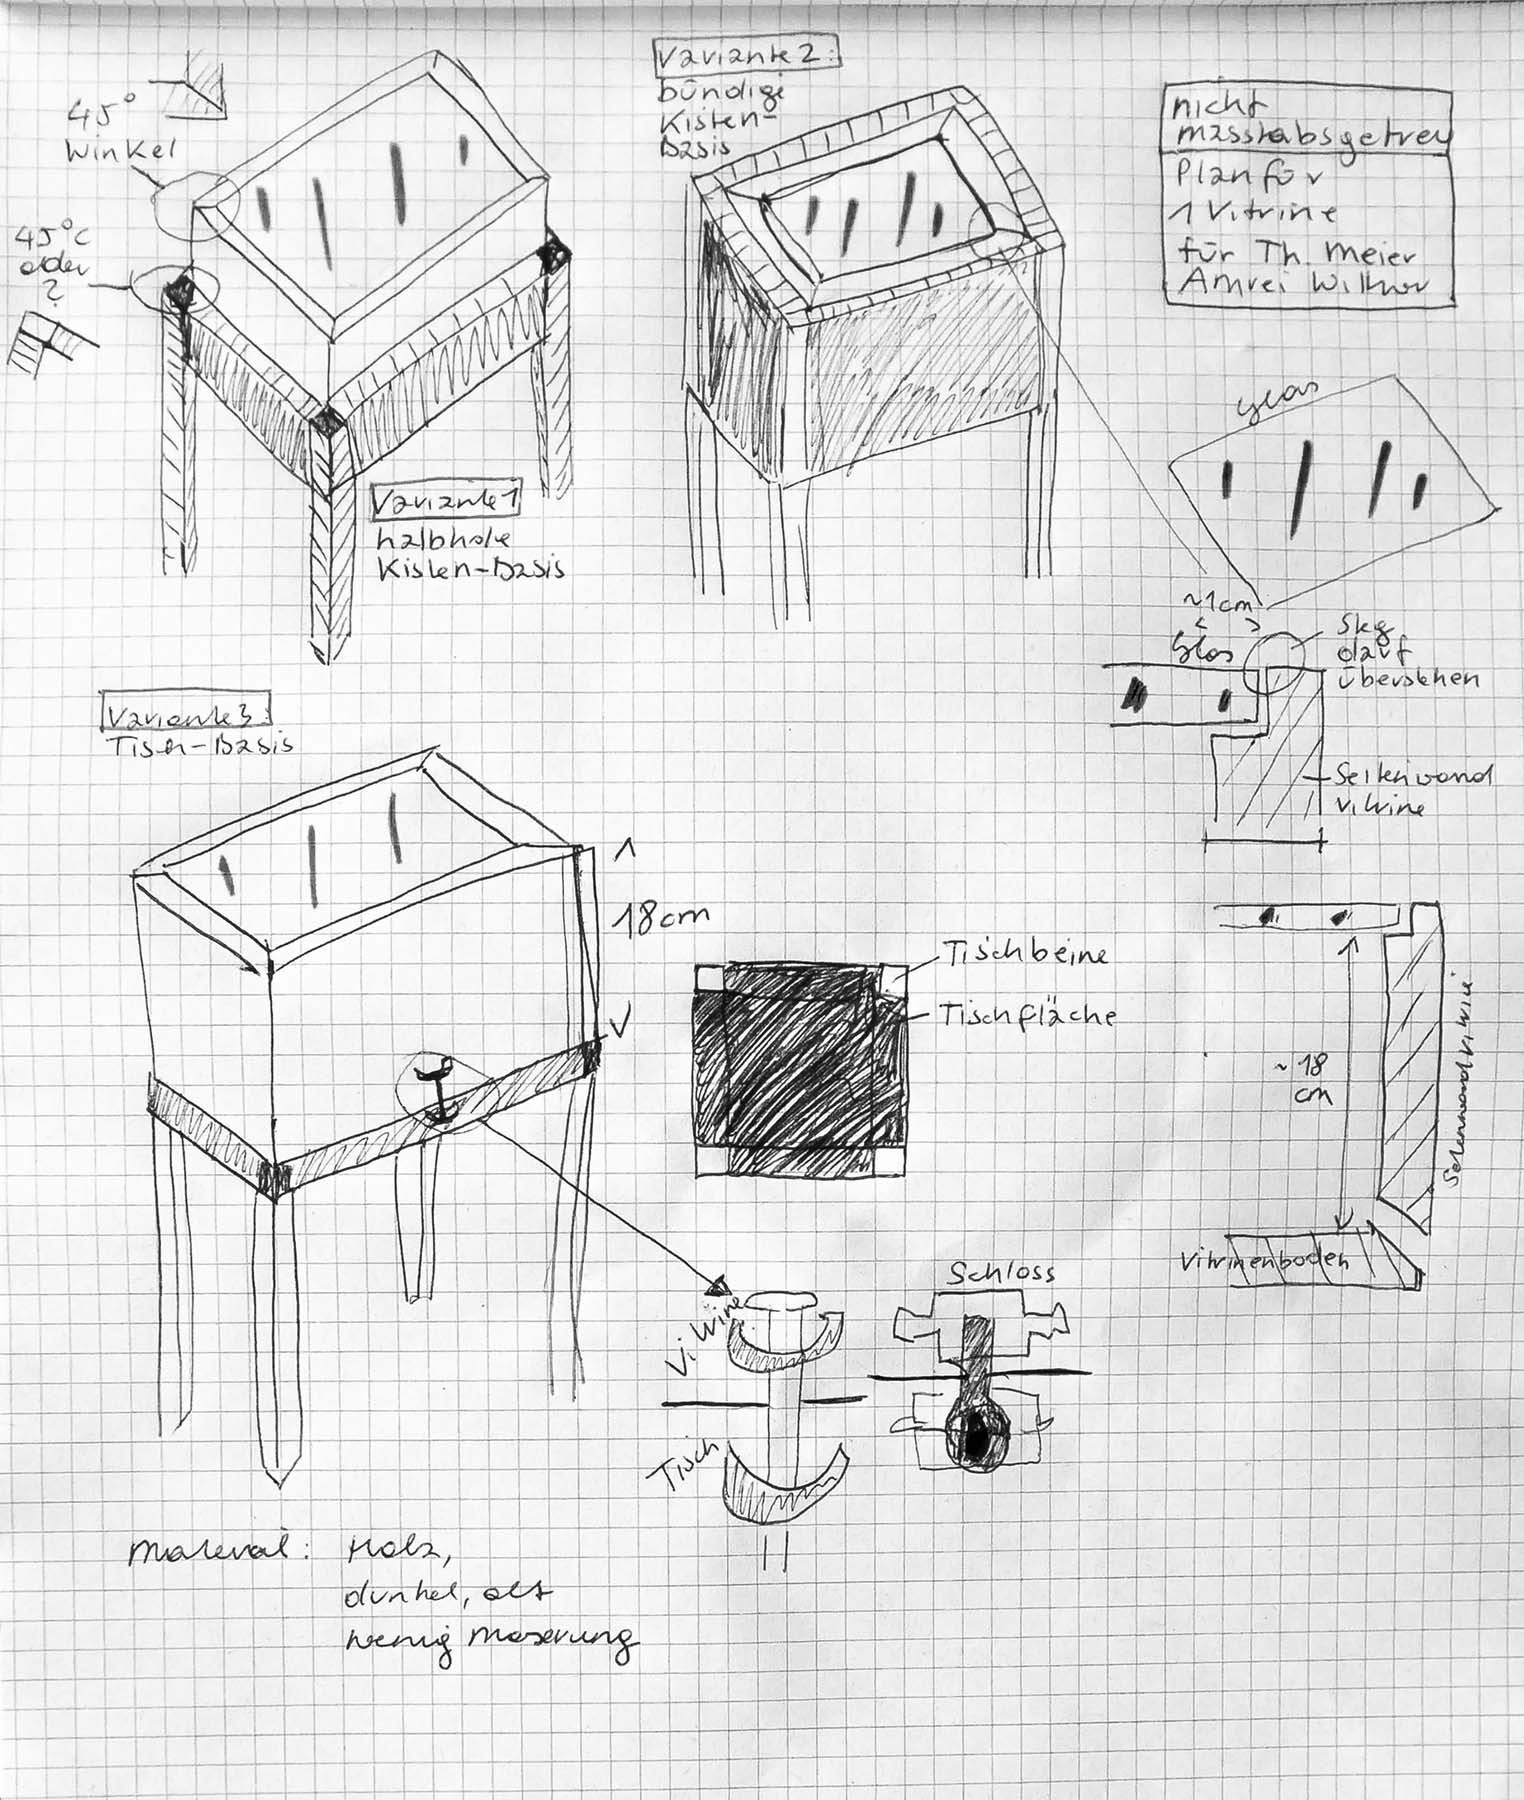 45°
Winkel
45°C
oder
?
Variante 1
halbhohe
Kisten-Basis
Variante 2:
bündige
Kisten-
Basis
nicht
massstabsgetreu
Plan für
1 Vitrine
für Th. Meier
Amrei
glas
~1cm
Glas
5kg
darf
überstehen
Seitenwand
Vitrine
Variante 3:
Tisch-Basis
18cm
Tischbeine
Tischfläche
~18
cm
Seitenwand Vitrine
Vitrinenboden
Vitrine
Tisch
Schloss
Material: Holz,
dunkel, alt
wenig Maserung